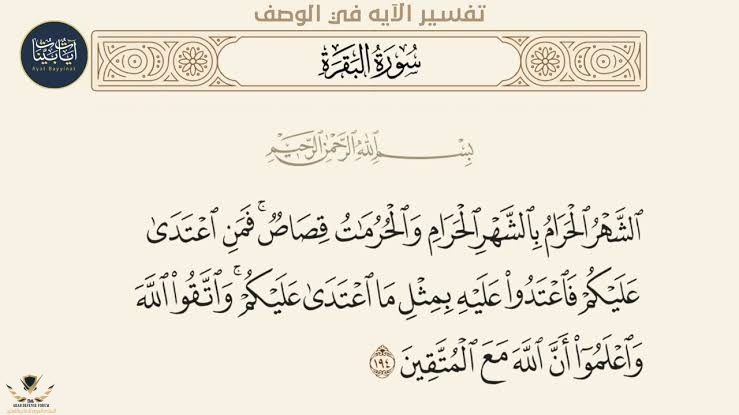 تفسير الآيه في الوصف
آيات بينات
Ayat Bayyinat
سُورَةُ البَقَرَةِ
بِسْمِ ٱللَّهِ ٱلرَّحْمَٰنِ ٱلرَّحِيمِ
ٱلشَّهْرُ ٱلْحَرَامُ بِٱلشَّهْرِ ٱلْحَرَامِ وَٱلْحُرُمَٰتُ قِصَاصٌ ۚ فَمَنِ ٱعْتَدَىٰ
عَلَيْكُمْ فَٱعْتَدُوا۟ عَلَيْهِ بِمِثْلِ مَا ٱعْتَدَىٰ عَلَيْكُمْ ۚ وَٱتَّقُوا۟ ٱللَّهَ
وَٱعْلَمُوٓا۟ أَنَّ ٱللَّهَ مَعَ ٱلْمُتَّقِينَ ١٩٤
ARAB DEFENSE FORUM